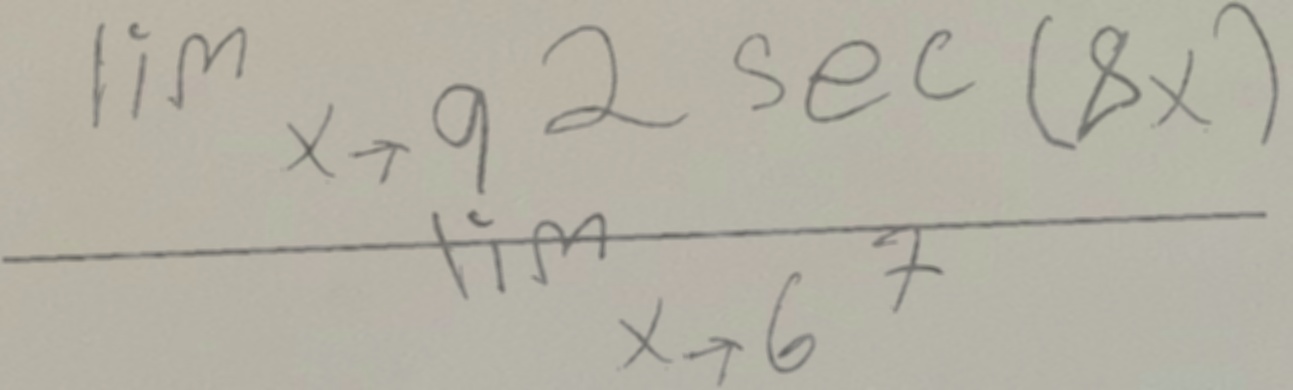 lim x→9 2 sec (8x)
lim x→6 7